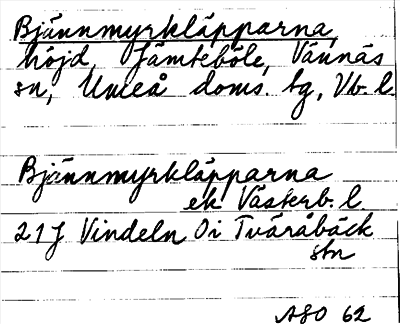 Bjännmyrkläpparna,
höjd, Jämteböle, Vännäs
sn, Umeå doms. tg, Vb. l.
Bjännmyrkläpparna
ek Västerb. l.
21J Vindeln Oi Tväråbäck
stn
ASO 62